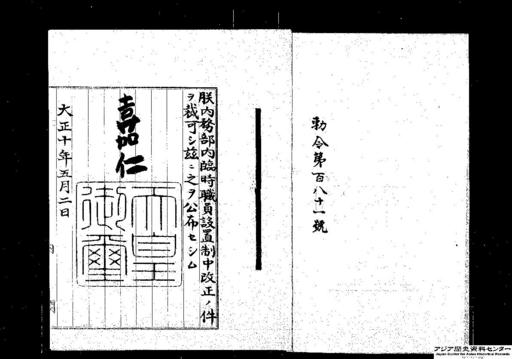 勅令第百八十一號
朕内務部内臨時職員設置制中改正ノ件
ヲ裁可シ茲ニ之ヲ公布セシム
嘉仁
天皇御璽
大正十年五月二日
アジア歴史資料センター
Japan Center for Asian Historical Records